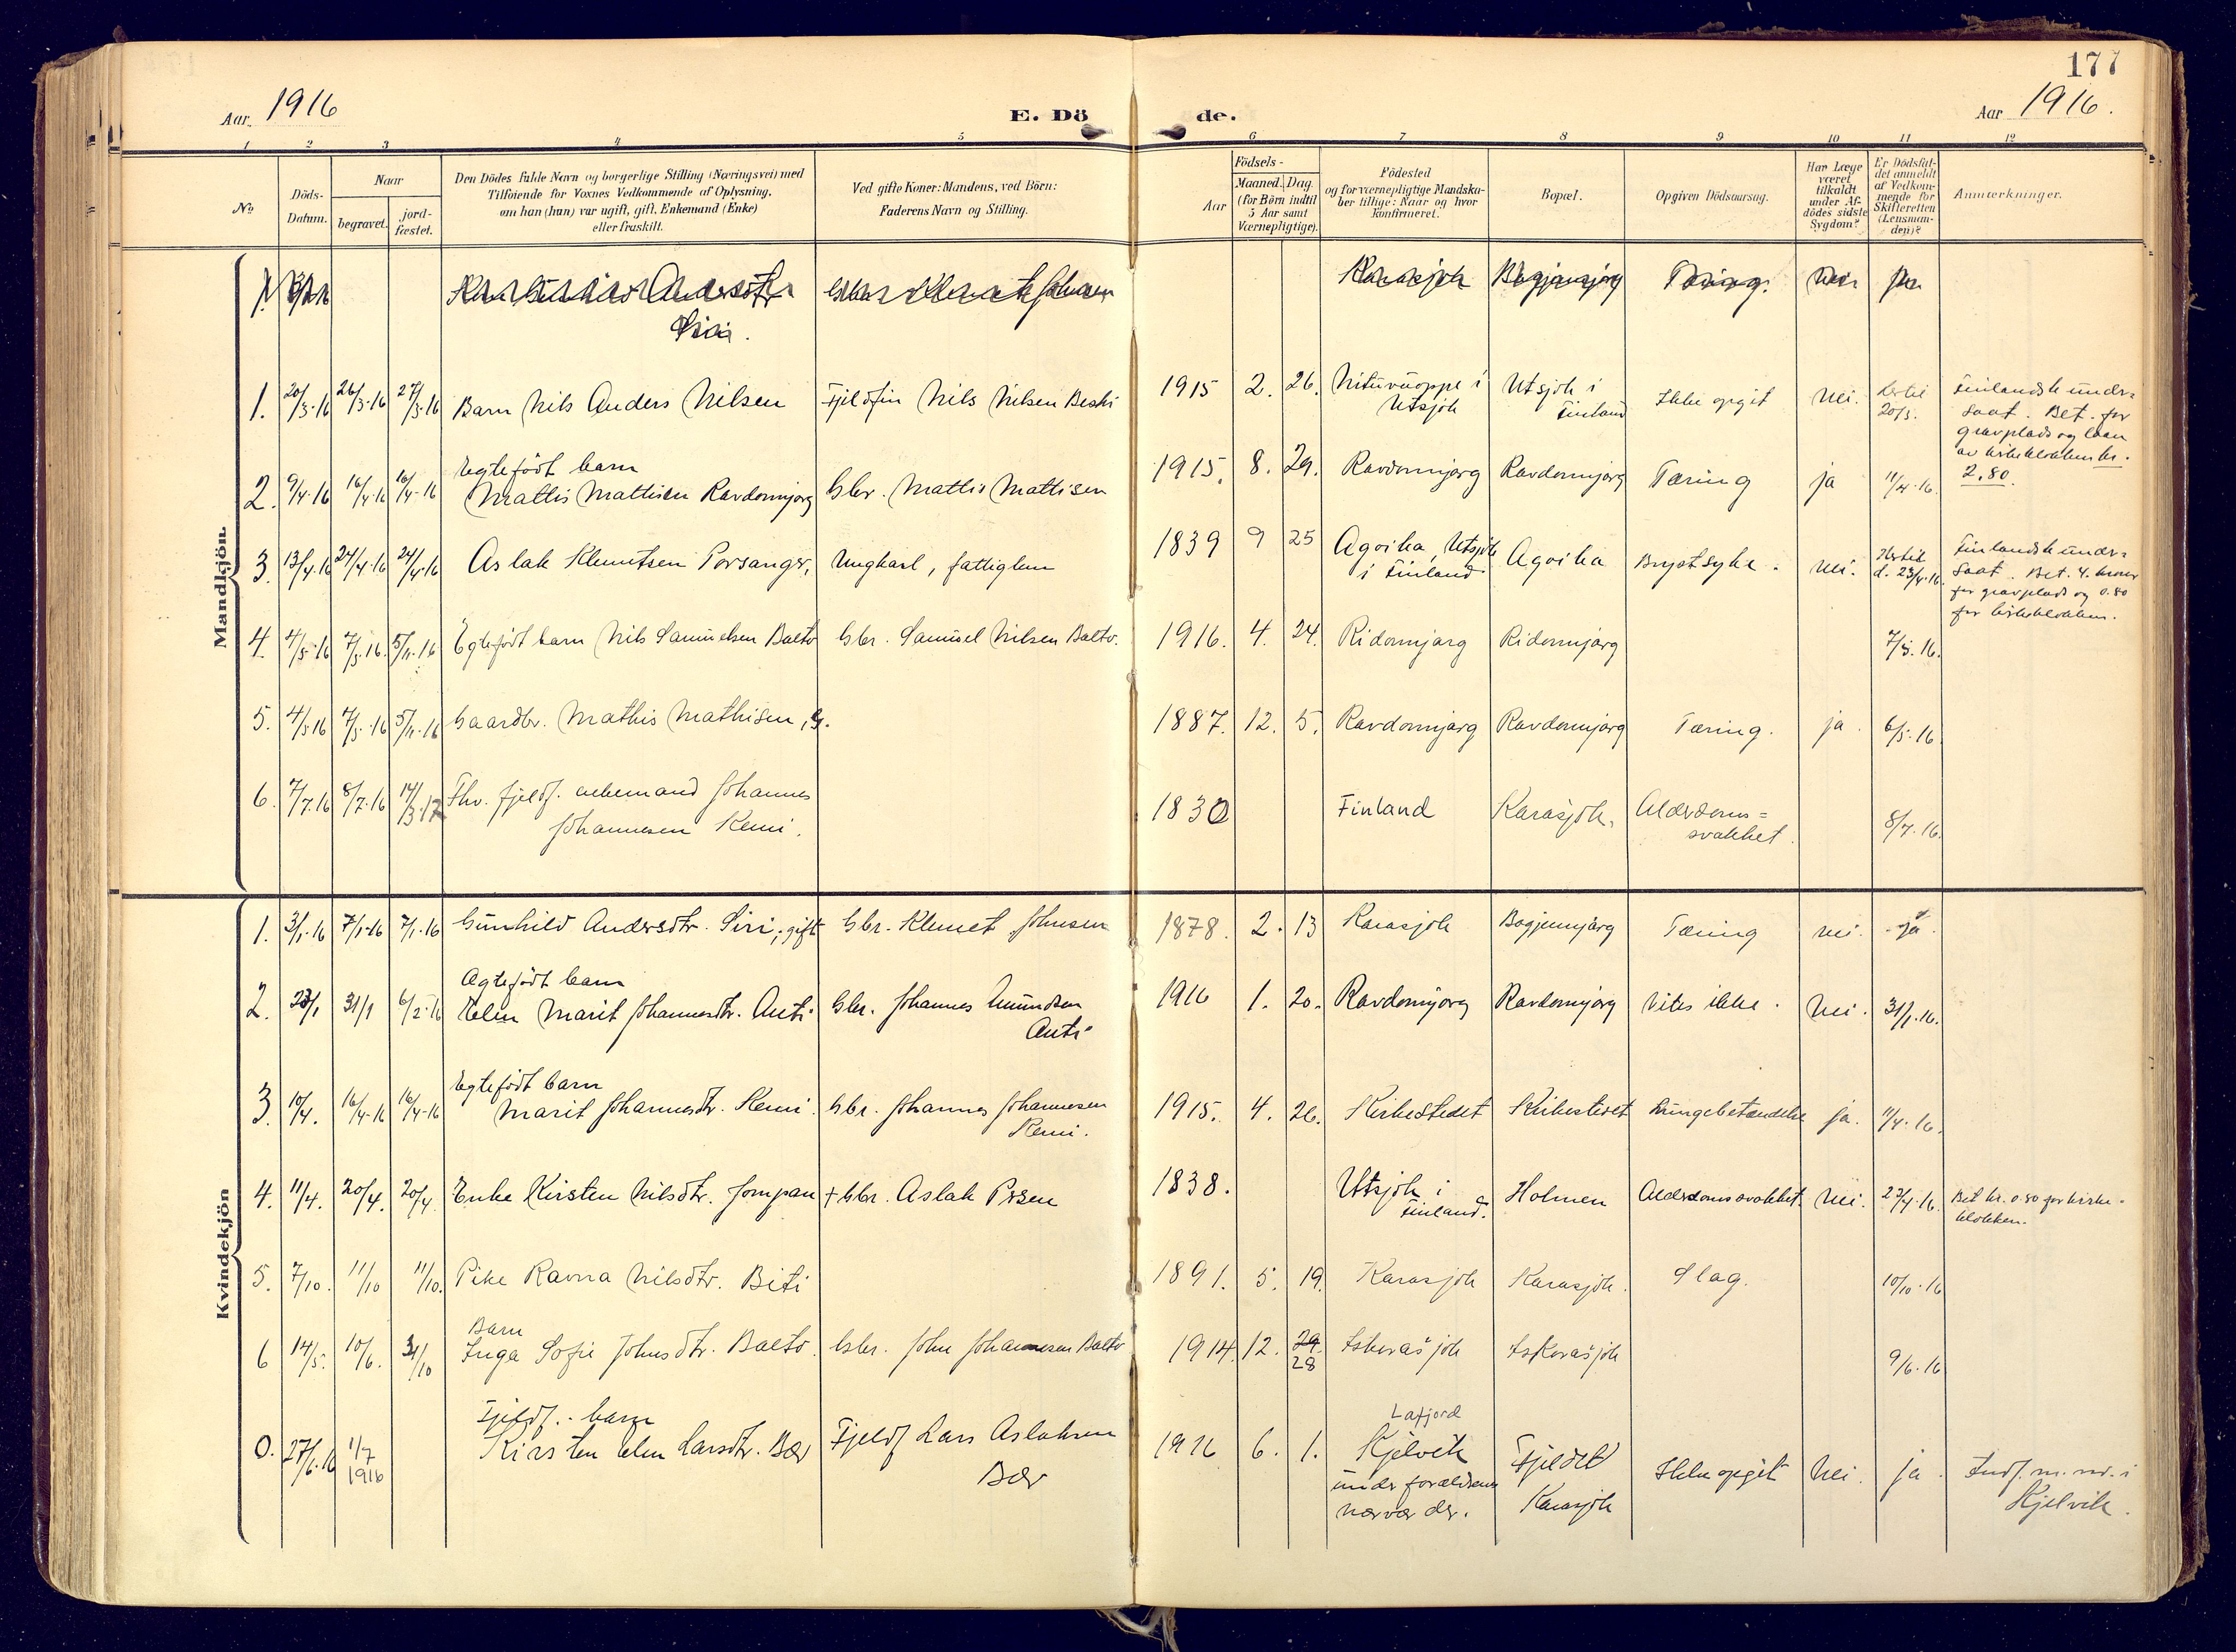 177
Aar 1916
E. Dö
de.
Aar 1916.
1 2 3 4 5 6 7 8 9 10 11 12
No
Döds-
Datum.
Naar
begravet.
jord-
fæstet.
Den Dödes fulde Navn og borgerlige Stilling (Næringsvei) med
Tilföiende for Voxnes Vedkommende af Oplysning,
om han (hun) var ugift, gift, Enkemand (Enke)
eller fraskilt.
Ved gifte Koner: Mandens, ved Börn:
Faderens Navn og Stilling.
Födsels-
Aar
Maaned. Dag.
(for Börn indtil
5 Aar samt
Værnepligtige).
Födested
og for værnepligtige Mandska-
ber tillige: Naar og hvor
konfirmeret.
Bopæl.
Opgiven Dödsaarsag.
Har Læge
været
tilkaldt
under Af-
dödes sidste
Sygdom?
Er Dödsfal-
det anmeldt
af Vedkom-
mende for
Skifteretten
(Lensman-
den)?
Anmærkninger.
Mandkjön.
1. Andersdtr. Karasjok Tæring. nei ja
Siri.
1. 20/3-16 26/3-16 27/3-16 Barn Nils Anders Nilsen Fjeldfin Nils Nilsen Beski 1915 2. 26. Utsjok Utsjok i Finland Ikke opgit Nei. 20/3. Finlandsk under=
saat. Bet. for
gravplads og laan
av kirkeklokken kr.
2.80.
2. 9/4-16 16/4-16 16/4-16 Egtefödt barn
Mattis Mattisen Ravdomnjarg Gbr. Mattis Mattisen 1915. 8. 29. Ravdomnjarg Ravdomnjarg Tæring ja 11/4-16.
3. 13/4-16 24/4-16 24/4-16 Aslak Klemetsen Porsanger, Ungkarl, fattiglem 1839 9 25 Agvika, Utsjok
i Finland Agvika Brystsyke. nei. d. 23/4-16. Finlandsk under=
saat. Bet. 4. kroner
for gravplads og 0.80
for kirkeklokken.
4. 4/5-16 7/5-16. 5/11-16 Egtefödt barn Nils Samuelsen Balto Gbr. Samuel Nilsen Balto. 1916. 4. 24. Ridomnjarg Ridomnjarg 7/5-16.
5. 4/5-16 7/5-16 5/11-16 Gaardbr. Mathis Mathisen, g. 1887. 12. 5. Ravdomnjarg Ravdomnjarg Tæring. ja. 6/5-16.
6. 7/7-16 8/7-16 14/3-17 Fhv. fjeldf. enkemand Johannes
Johannesen Kemi. 1830 Finland Karasjok. Alderdoms=
svakhet. 8/7-16.
Kvindekjön
1. 3/1-16 7/1-16 7/1-16 Gunhild Andersdtr. Siri, gift Gbr. Klemet Johnsen 1878. 2. 13 Karasjok Bogjemnjarg Tæring nei. ja.
2. 23/1 31/1 6/2-16 Ægtefödt barn
Elen Marit Johannesdtr. Anti Gbr. Johannes Amundsen
Anti 1916 1. 20. Ravdomnjarg Ravdomnjarg Vites ikke. Nei. 31/1-16.
3. 10/4. 16/4-16 16/4-16 Egtefödt barn
Marit Johannesdtr. Kemi. Gbr. Johannes Johannesen
Kemi. 1915. 4. 26. Kirkestedet Kirkestedet Lungebetændelse ja. 11/4-16.
4. 11/4. 20/4. 20/4. Enke Kirsten Nilsdtr. Jompan + Gbr. Aslak Persen 1838. Utsjok i
Finland. Holmen Alderdomssvakhet. Nei. 23/4-16. Bet kr. 0.80 for kirke-
klokken.
5. 7/10. 11/10 11/10. Pike Ravna Nilsdtr. Biti 1891. 5. 19. Karasjok Karasjok. Slag. 10/10-16
6 14/5. 10/6. 31/10 Barn
Inga Sofie Johnsdtr. Balto. Gbr. John Johannesen Balto 1914. 12. 29.
28 Iskorasjok Iskorasjok 9/6-16
0. 27/6-16 1/7
1916 Fjeldf.-barn
Kirsten Elen Larsdtr. Bær Fjeldf Lars Aslaksen
Bær 1916 6. 1. Lafjord
Kjelvik
under forældrenes
nærvær der. Fjeldet
Karasjok Ikke opgit Nei. ja. Indf. m. nr. i
Kjelvik.